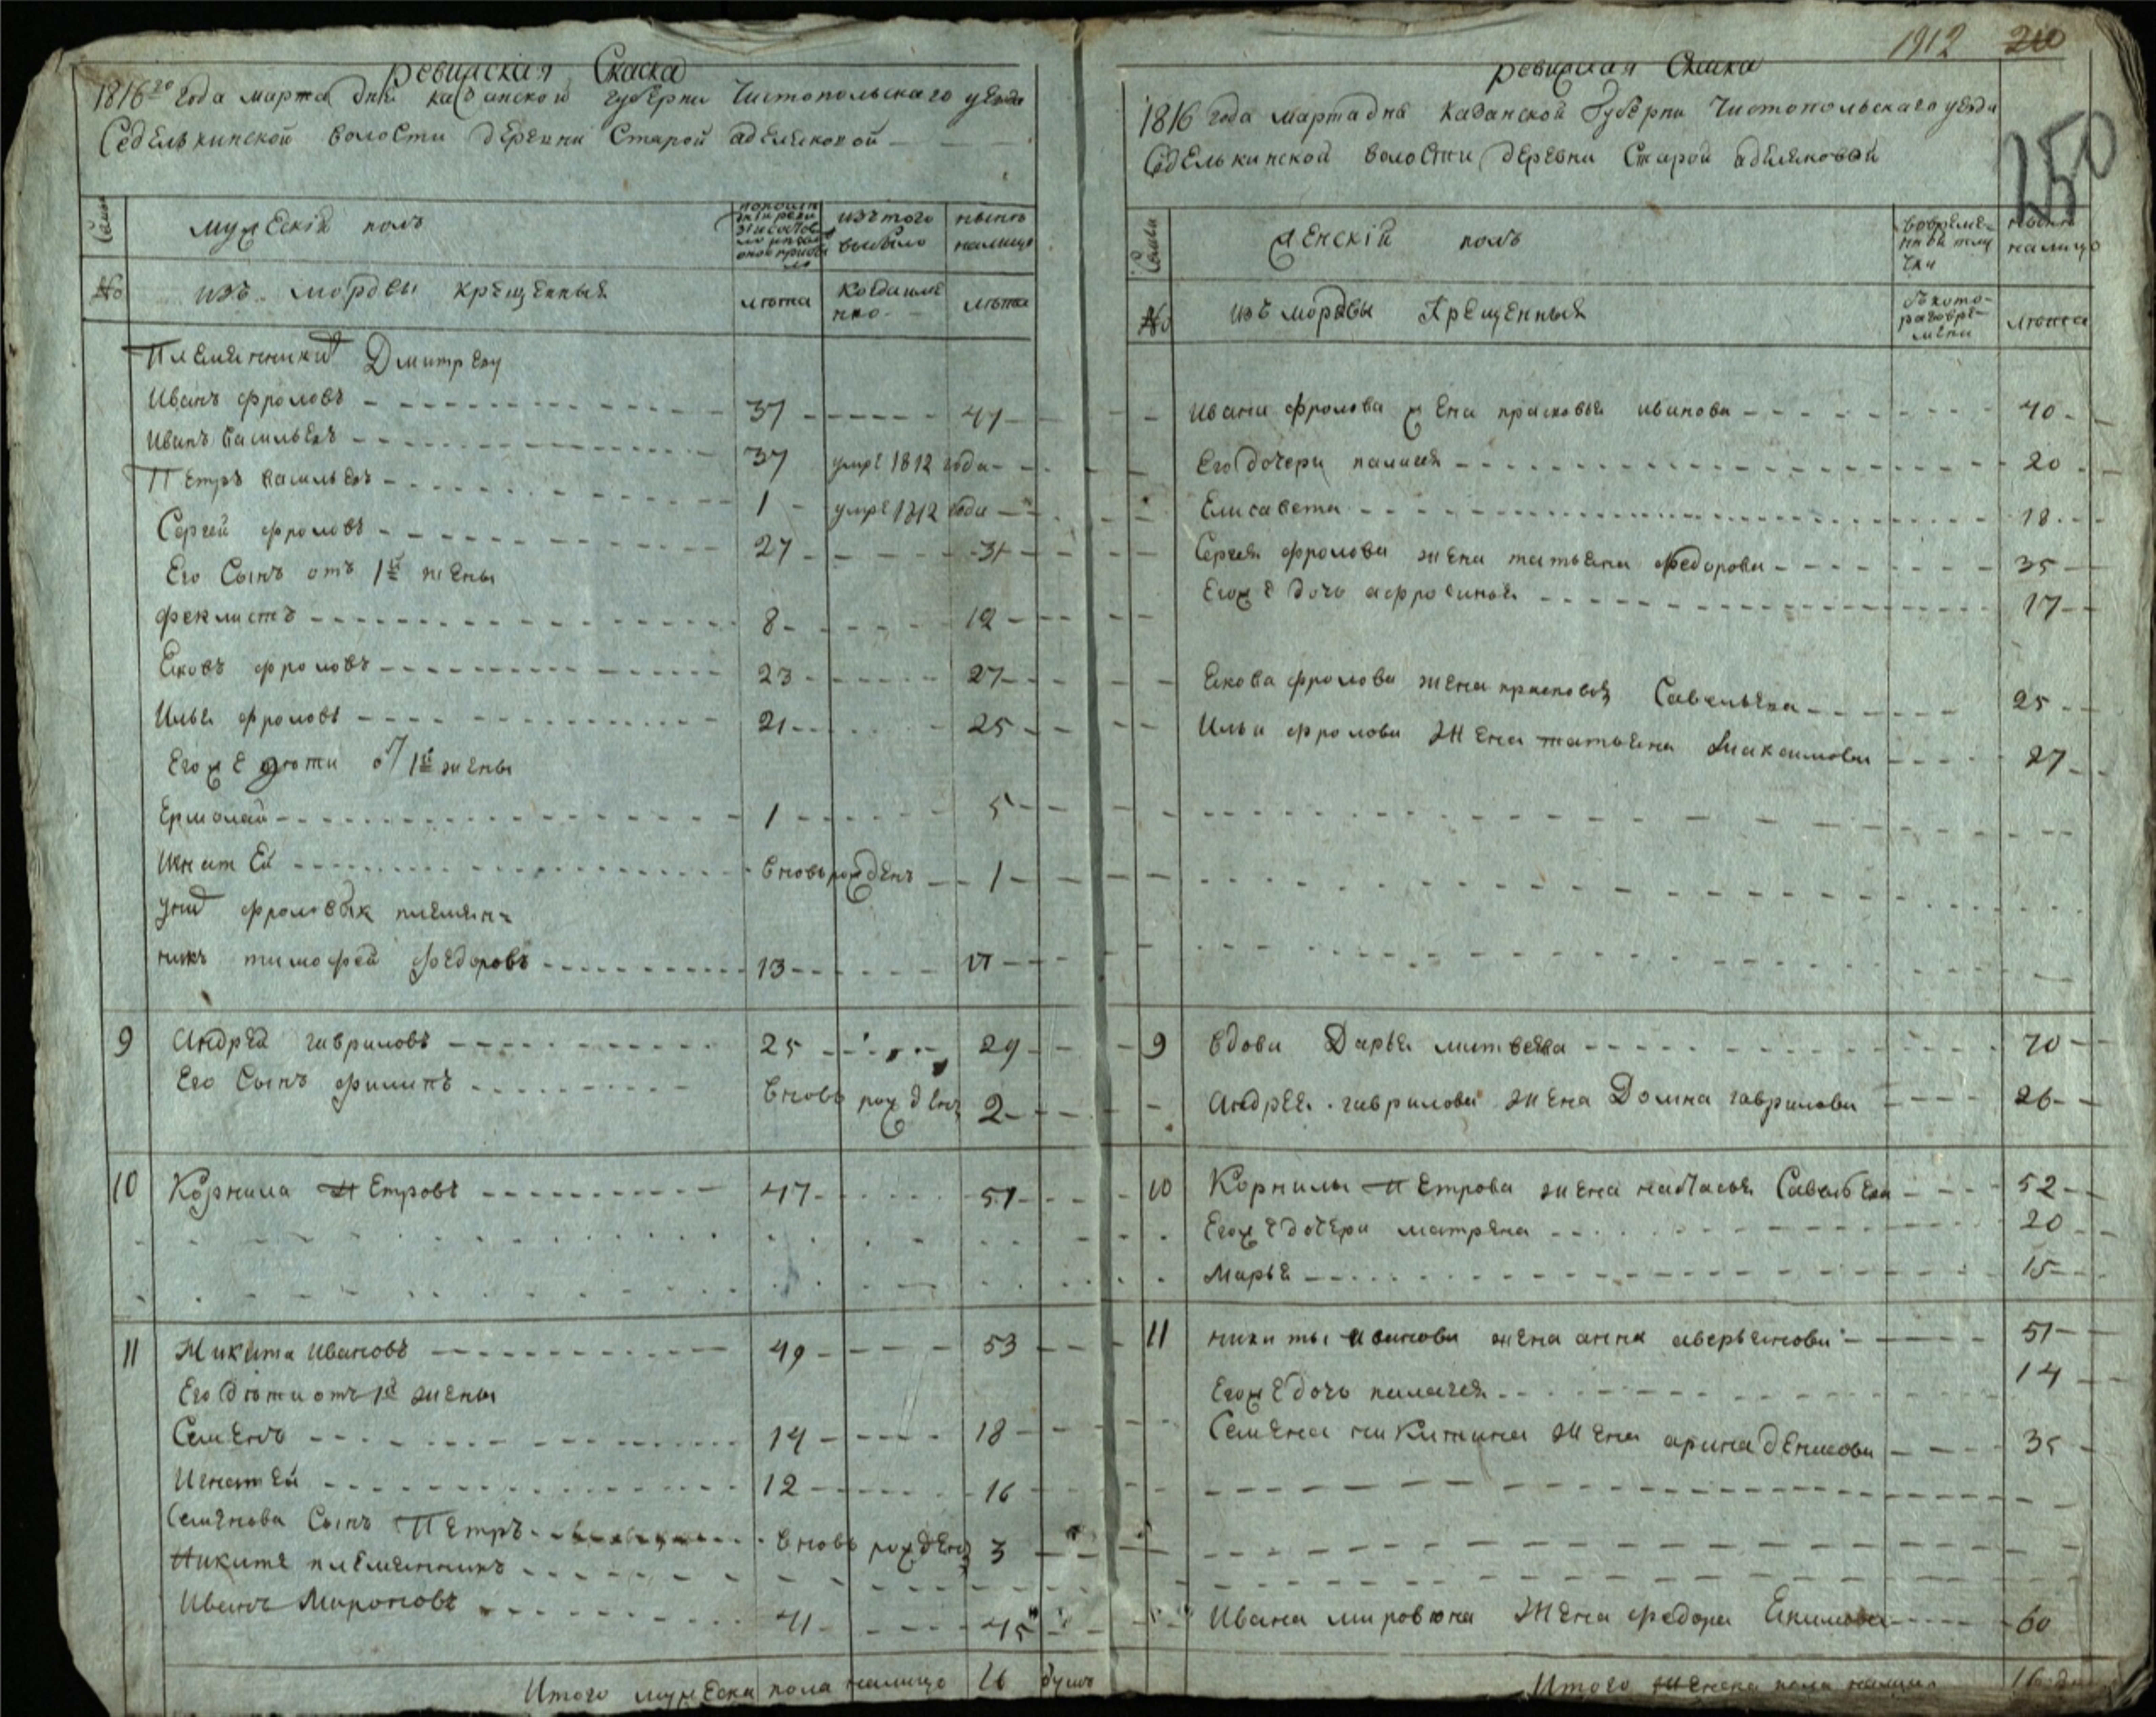 1912 210
250
Ревиская Скаска
1816го года марта дня казанской губерни Чистопольскаго уезда
Седелькинской волости деревни Старой адемсковой
Семьи
мужескій полъ
изъ того выбыло
ныне налицо
№
изъ мордвы крещенныя
лѣта
Когда имянно
лѣта
Племянники Дмитрею
Иванъ фроловъ 37 41
Иванъ васильевъ 37 умре 1812 года
Петръ васильевъ 1 умре 1812 года
Сергей фроловъ 27 31
Его Сынъ отъ 1й жены
феклистъ 8 12
Ековъ фроловъ 23 27
Илья фроловъ 21 25
Егоже дѣти от 1й жены
Ермолай 1 5
Игнатей вновь рожденъ 1
фроловых племян=
никъ тимофей федоровъ 13 17
9 Андрей гавриловъ 25 29
Его Сынъ филипъ вновь рожденъ 2
10 Корнила Петровъ 47 51
11 Никита Ивановъ 49 53
Его дѣти отъ 1й жены
Семенъ 14 18
Игнатей 12 16
Семенова Сынъ Петръ вновь рожденъ 3
Никите племянникъ
Иванъ Мироновъ 41 45
Итого мужеска пола налицо 16 душъ
Ревиская Скаска
1816 года марта дня Казанской Губерни Чистопольскаго уезда
Седелькинской волости деревни Старой адемсковой
Семьи
женскій полъ
ныне налицо
№
изъ мордвы Крещенныя
лѣта
Ивана фролова жена прасковья иванова 40
Его дочери палагея 20
Елисавета 18
Сергея фролова жена татьяна федорова 35
Егоже дочь афросинья 17
Екова фролова жена прасковья Савельева 25
Ильи фролова жена татьяна Максимова 27
9 вдова Дарья матвеева 70
Андрея гаврилова жена Домна гаврилова 26
10 Корнилы Петрова жена настасья Савельева 52
Егоже дочери матрена 20
Марья 15
11 никиты иванова жена анна аверьянова 51
Егоже дочь палагея 14
Семена никитина жена арина денисова 35
Ивана миронова жена федора Екимова 60
Итого женска пола налицо 16